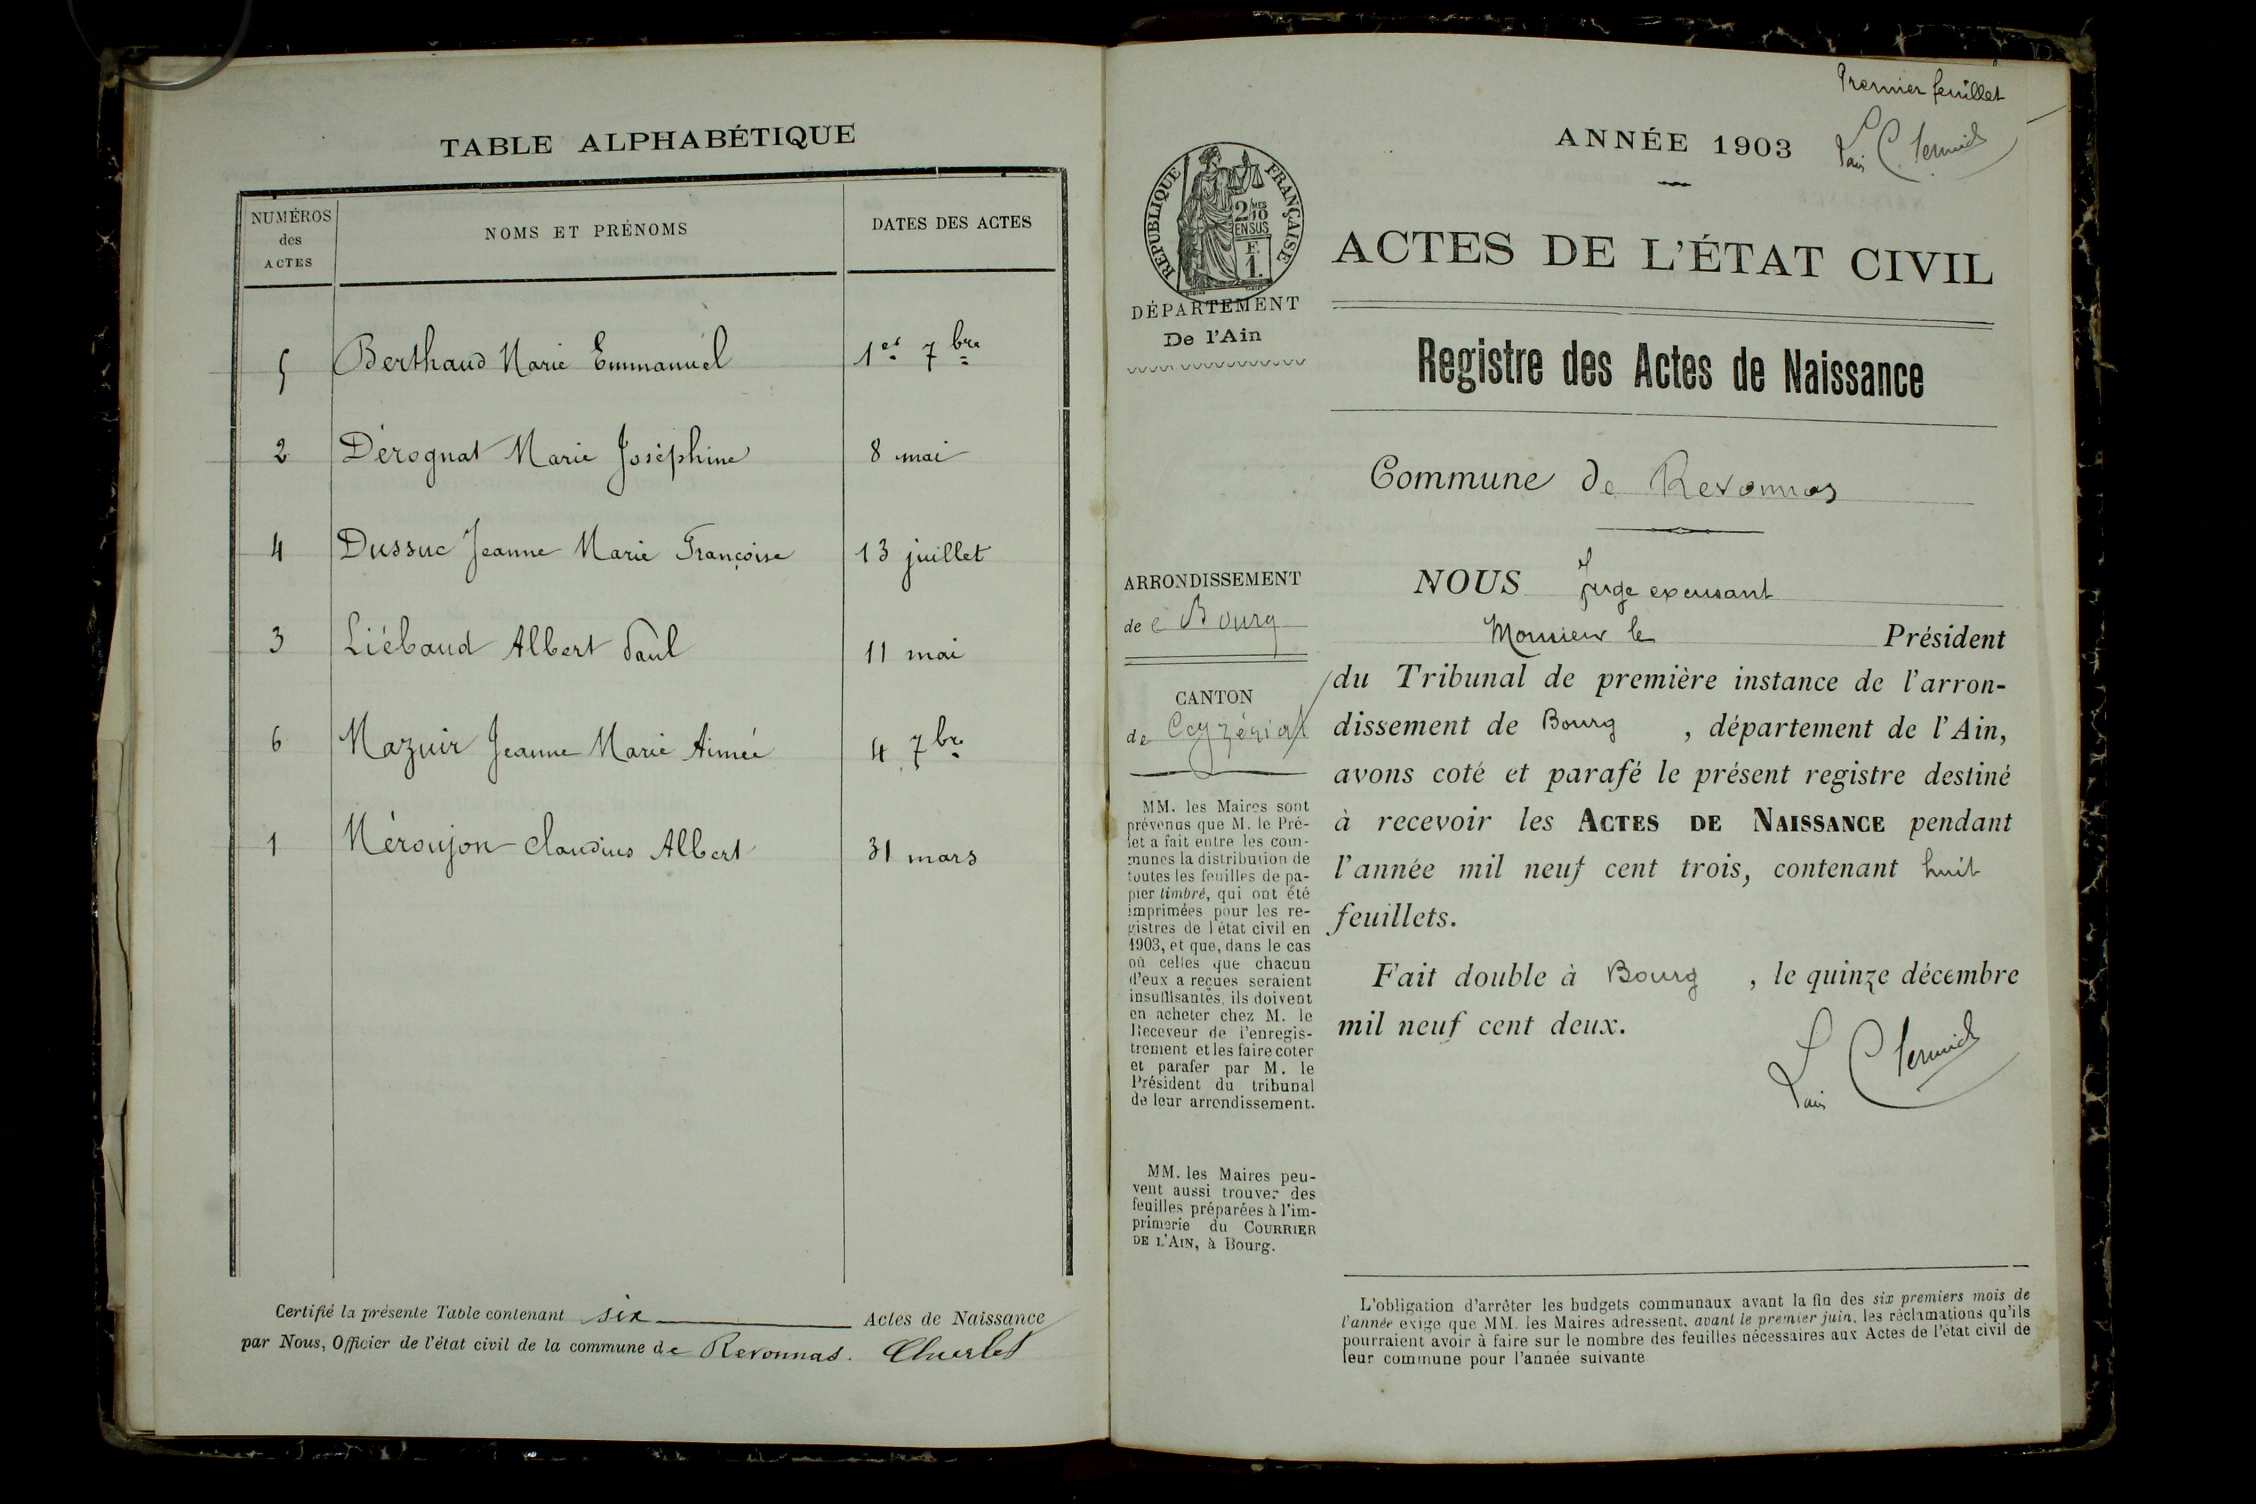 TABLE ALPHABÉTIQUE
NUMÉROS
des
ACTES
NOMS ET PRÉNOMS
DATES DES ACTES
5 Berthaud Marie Emmanuel 1er 7bre
2 Dérognat Marie Joséphine 8 mai
4 Dussuc Jeanne Marie Françoise 13 juillet
3 Liébaud Albert Paul 11 mai
6 Mazuir Jeanne Marie Aimée 4 7bre
1 Méroujon Claudius Albert 31 mars
Certifié la présente Table contenant six Actes de Naissance
par Nous, Officier de l'état civil de la commune de Revonnas.
Premier feuillet
ANNÉE 1903
RÉPUBLIQUE FRANÇAISE
2/10 MES
EN SUS
F.
1.
ACTES DE L'ÉTAT CIVIL
DÉPARTEMENT
De l'Ain
Registre des Actes de Naissance
Commune de Revonnas
ARRONDISSEMENT
de Bourg
CANTON
de Ceyzériat
MM. les Maires sont
prévenus que M. le Pré-
fet a fait entre les com-
munes la distribution de
toutes les feuilles de pa-
pier timbré, qui ont été
imprimées pour les re-
gistres de l'état civil en
1903, et que, dans le cas
où celles que chacun
d'eux a reçues seraient
insuffisantes, ils doivent
en acheter chez M. le
Receveur de l'enregis-
trement et les faire coter
et parafer par M. le
Président du tribunal
de leur arrondissement.
MM. les Maires peu-
vent aussi trouver des
feuilles préparées à l'im-
primerie du COURRIER
DE L'AIN, à Bourg.
NOUS Juge excusant
Monsieur le Président
du Tribunal de première instance de l'arron-
dissement de Bourg , département de l'Ain,
avons coté et parafé le présent registre destiné
à recevoir les ACTES DE NAISSANCE pendant
l'année mil neuf cent trois, contenant huit
feuillets.
Fait double à Bourg , le quinze décembre
mil neuf cent deux.
L'obligation d'arrêter les budgets communaux avant la fin des six premiers mois de
l'année exige que MM. les Maires adressent, avant le premier juin, les réclamations qu'ils
pourraient avoir à faire sur le nombre des feuilles nécessaires aux Actes de l'état civil de
leur commune pour l'année suivante